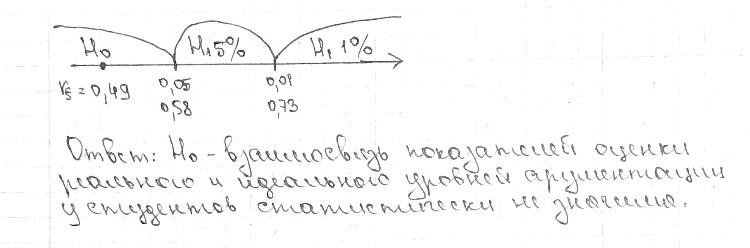 H₀ H₁ 5% H₁ 1%
rₛ = 0,49 0,05 0,01
0,58 0,73
Ответ: H₀ - взаимосвязь показателей оценки
реального и идеального уровней аргументации
у студентов статистически не значима.